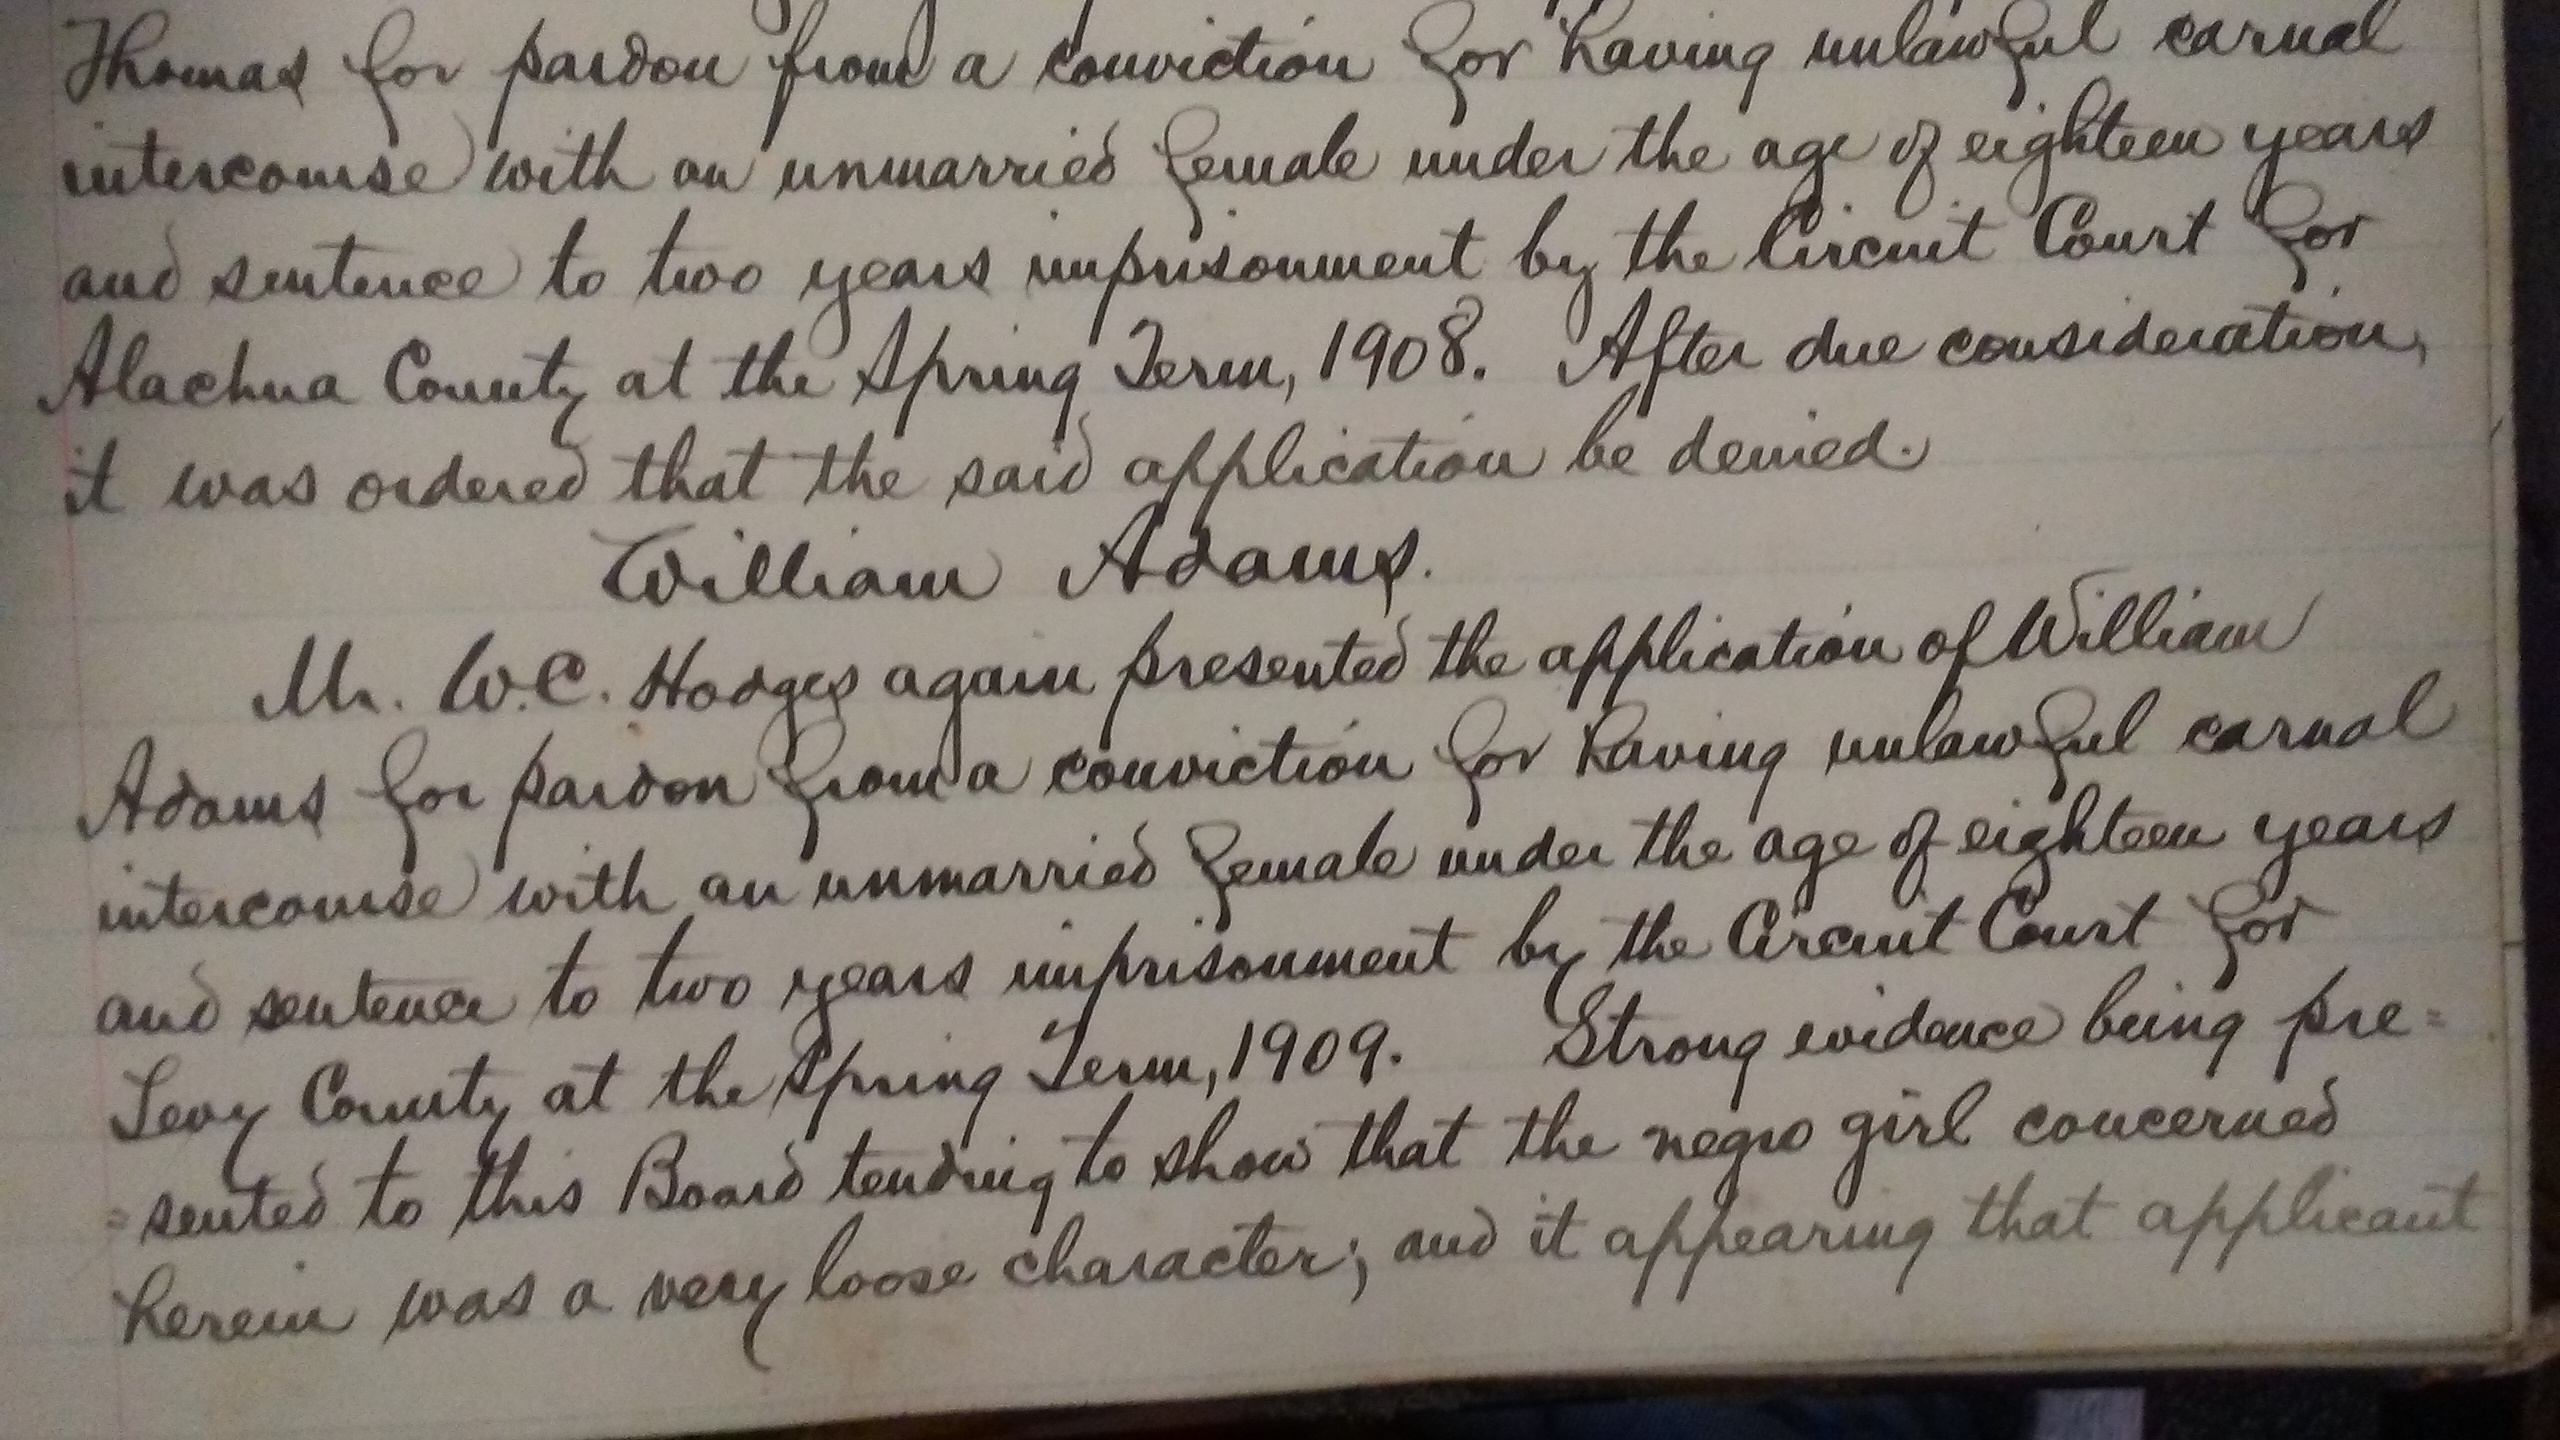 Thomas for pardon from a conviction for having unlawful carnal
intercourse with an unmarried female under the age of eighteen years
and sentence to two years imprisonment by the Circuit Court for
Alachua County at the Spring Term, 1908. After due consideration,
it was ordered that the said application be denied.
William Adams.
Mr. W.C. Hodges again presented the application of William
Adams for pardon from a conviction for having unlawful carnal
intercourse with an unmarried female under the age of eighteen years
and sentence to two years imprisonment by the Circuit Court for
Levy County at the Spring Term, 1909. Strong evidence being pre=
=sented to this Board tending to show that the negro girl concerned
herein was a very loose character; and it appearing that applicant